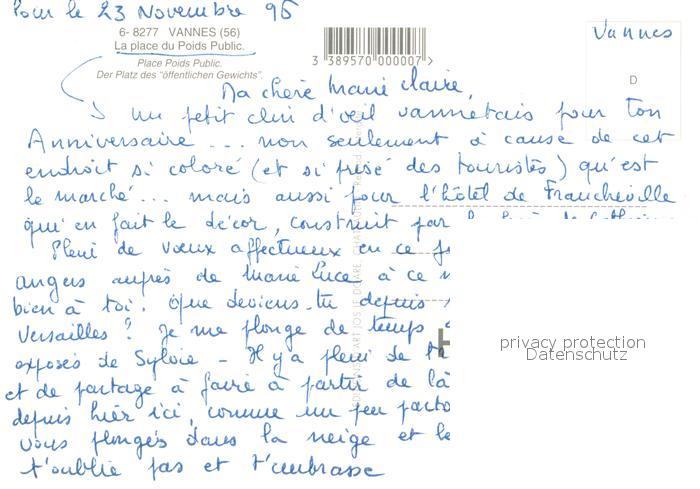 Pour le 23 Novembre 96
6- 8277 VANNES (56)
La place du Poids Public.
Place Poids Public.
Der Platz des "öffentlichen Gewichts".
3 389570 000007
Vannes
D
Ma chère Marie Claire,
Un petit clin d'oeil vannetais pour ton
Anniversaire ... non seulement à cause de cet
endroit si coloré (et si prisé des touristes) qu'est
le marché ... mais aussi pour l'hôtel de Francheville
qui en fait le décor, construit par
Plein de vœux affectueux en ce
angers auprès de Marie Luce à ce
bien à toi. Que deviens-tu depuis
Versailles ? Je me plonge de temps
exposés de Sylvie - Il y a plein de
et de partage à faire à partir de là
depuis hier ici, comme un peu
vous plongés dans la neige et
t'oublie pas et t'embrasse
privacy protection
Datenschutz